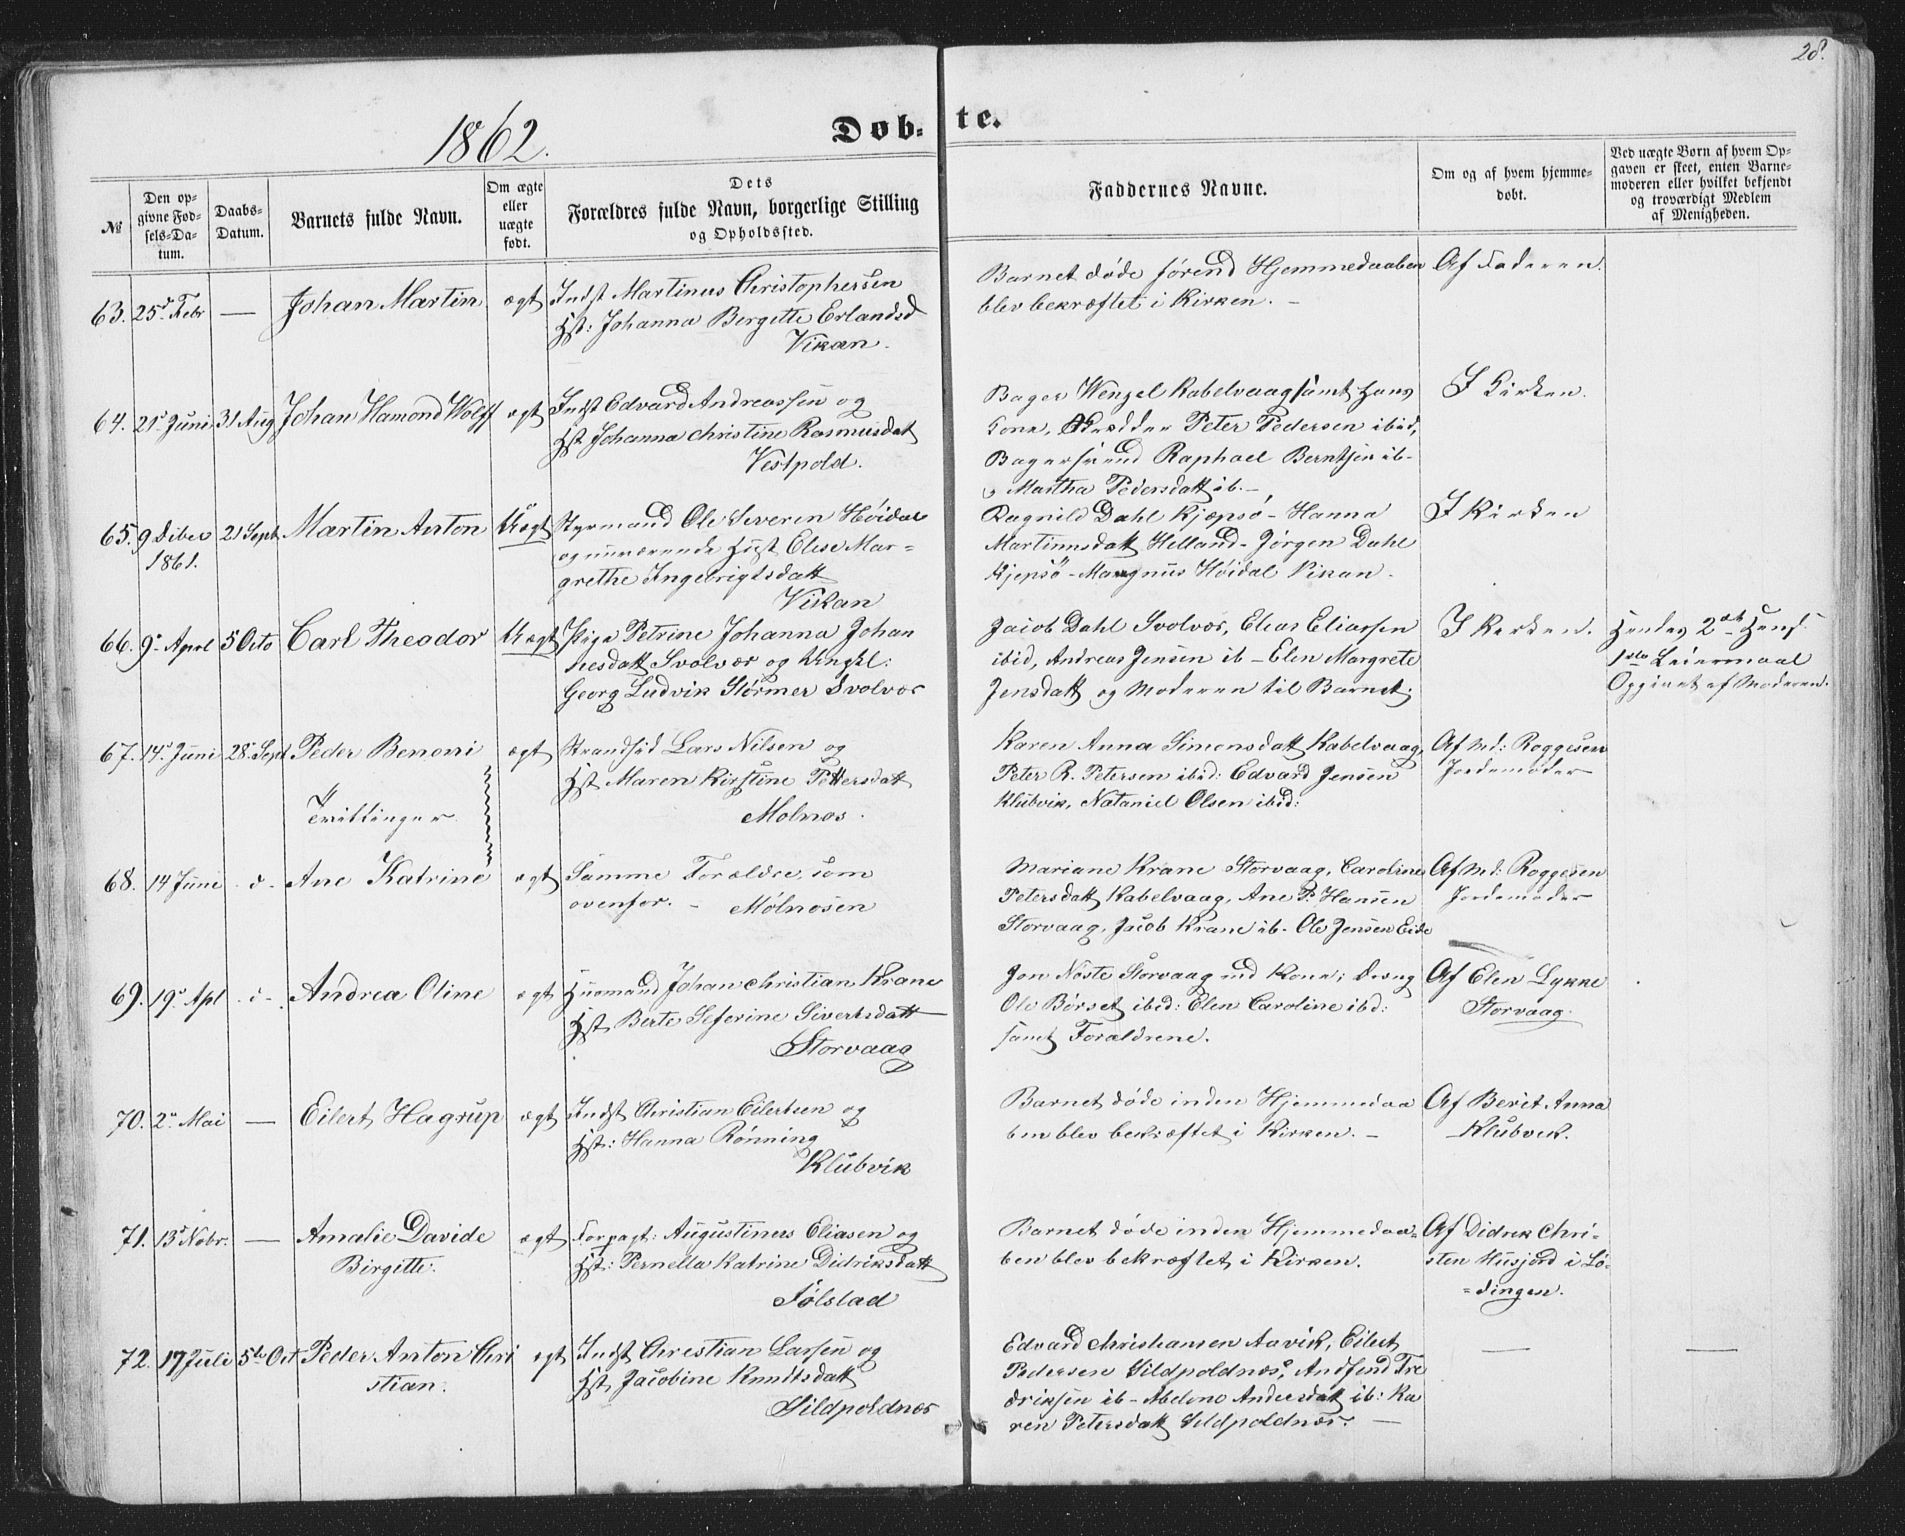 28.
1862.
Døb-te.
№
Den op-
givne Fød-
sels-Da-
tum.
Daabs-
Datum.
Barnets fulde Navn.
Om ægte
eller
uægte
født.
Dets
Forældres fulde Navn, borgerlige Stilling
og Opholdssted.
Faddernes Navne.
Om og af hvem hjemme-
døbt.
Ved uægte Børn af hvem Op-
gaven er skeet, enten Barne-
moderen eller hvilket bekjendt
og troværdigt Medlem
af Menigheden.
63. 25de Febr — Johan Martin ægt Indst Martinus Christophersen
Hst: Johanna Bergitte Erlandsd
Vikan.
Barnet døde førend Hjemmedaaben
blev bekræftet i Kirken. —
Af Faderen.
64. 21de Juni 31 Aug Johan Hamond Wolff ægt Indst Edvard Andreassen og
Hst Johanna Christine Rasmusdat
Vestpold.
Bager Wenzel Kabelvaag samt Hans
Kone, Peter Pedersen ibid,
Bagersvend Raphael Berntsen ib-
Martha Pedersdatt ib. —
I Kirken.
65. 9 Dcber 21 Sept Martin Anton Uægt Styrmand Ole Severin Høidal
1861.
og nuværende Hust Elise Mar=
grethe Ingebrigtsdatt
Vikan
Ragnild Dahl Kjepsø - Hanna
Martinusdatt Helland - Jørgen Dahl
Kjepsø - Magnus Høidal Vikan.
I Kirken
66. 9de Aprl 5 Octo Carl Theodor Uægt Pige Petrine Johanna Johan
nesdatt Svolvær og Ungkl:
Georg Ludvik Størmer Svolvær
Jacob Dahl Svolvær, Elias Eliassen
ibid, Andreas Jensen ib - Elen Margrete
Jensdatt og Moderen til Barnet.
I Kirken.
Hendes 2det Hans
1ste Leiermaal
Opgivet af Moderen.
67. 14de Juni 28 Sept Peder Benoni ægt Strandsid Lars Nilsen og
Hst Maren Kirstine Pettersdatt
Molnøs.
Tvillinger
Karen Anna Simensdatt Kabelvaag,
Peter R. Petersen ibid: Edvard Jensen
Klubvik, Nataniel Olsen ibid:
Af Md: Roggesen
Jordemoder
68. 14 Juni d- Ane Katrine ægt Samme Forældre som
ovenfor. - Mølnosen
Mariane Krane Storvaag, Caroline
Petersdatt Kabelvaag, Ane P. Hansen
Storvaag, Jacob Krane ib- Ole Jensen Eide
Af Md: Roggesen
Jordemoder
69. 19de Apl d- Andrea Oline ægt Huusmand Johan Christian Krane
Hst Berte Seferine Sivertsdatt
Storvaag
Jon Nøste Storvaag med Kone; Dreng
Ole Børset ibid: Elen Caroline ibd:
samt Forældrene.
Af Elen Lykke
Storvaag.
70. 2den Mai — Eilert Hagrup ægt Indst Christian Eilertsen og
Hst: Hanna Rønning
Klubvik
Barnet døde inden Hjemmedaa
ben blev bekræftet i Kirken. —
Af Berit Anna
Klubvik.
71. 13de Nobr. — Amalie Davide ægt Forpagt: Augustinus Eliasen og
Birgitte.
Hst: Pernella Katrine Didriksdatt
Følstad
Barnet døde inden Hjemmedaa=
ben blev bekræftet i Kirken.
Af Didrik Chri-
sten Husjord i Lø-
=dingen.
72. 17 Juli 5te Oct Peder Anton Chri ægt Indst Christian Larsen og
stian.
Hst Jacobine Knudtsdatt
Sildpoldnes
Edvard Christiansen Aavik, Eilert
Pedersen Sildpoldnes, Andfind Fre
driksen ib - Abelone Andersdatt ib: Ka
ren Petersdatt Sildpoldnes. —
— —